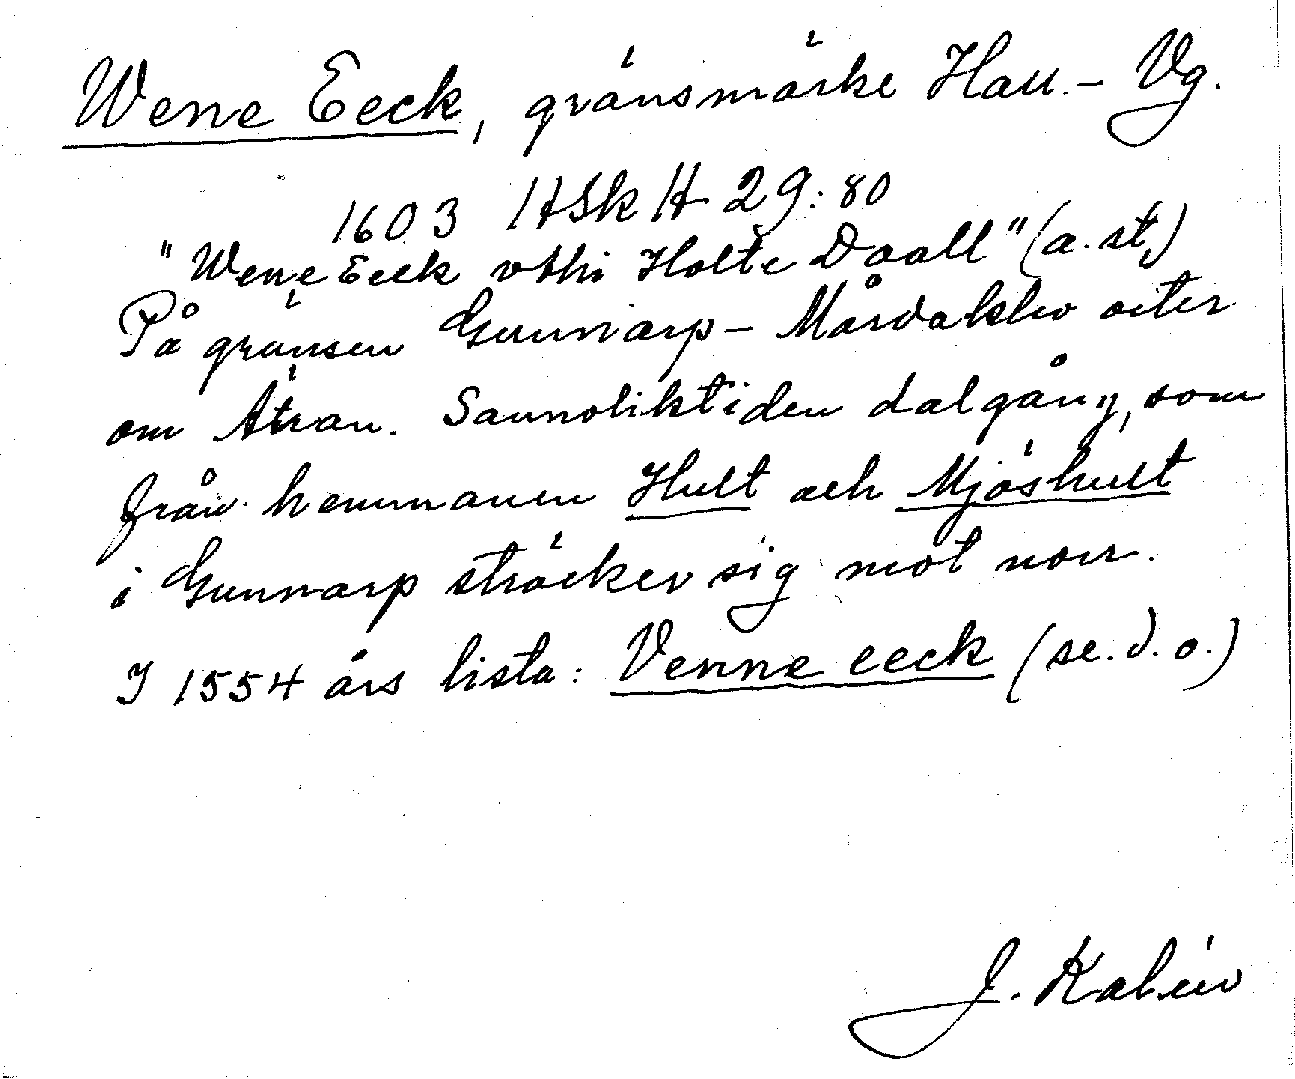 Wene Eeck, gränsmärke Hall.- Vg.
1603 HSk H 29:80
"Wene Eeck vthi Holte Daall" (a.st.)
På gränsen Gunnarp - Mårdaklev öster
om Ätran. Sannolikt i den dalgång, som
från hemmanen Hult och Mjöshult
i Gunnarp sträcker sig mot norr.
I 1554 års lista: Venne eeck (se.d.o.)
J. Kalén